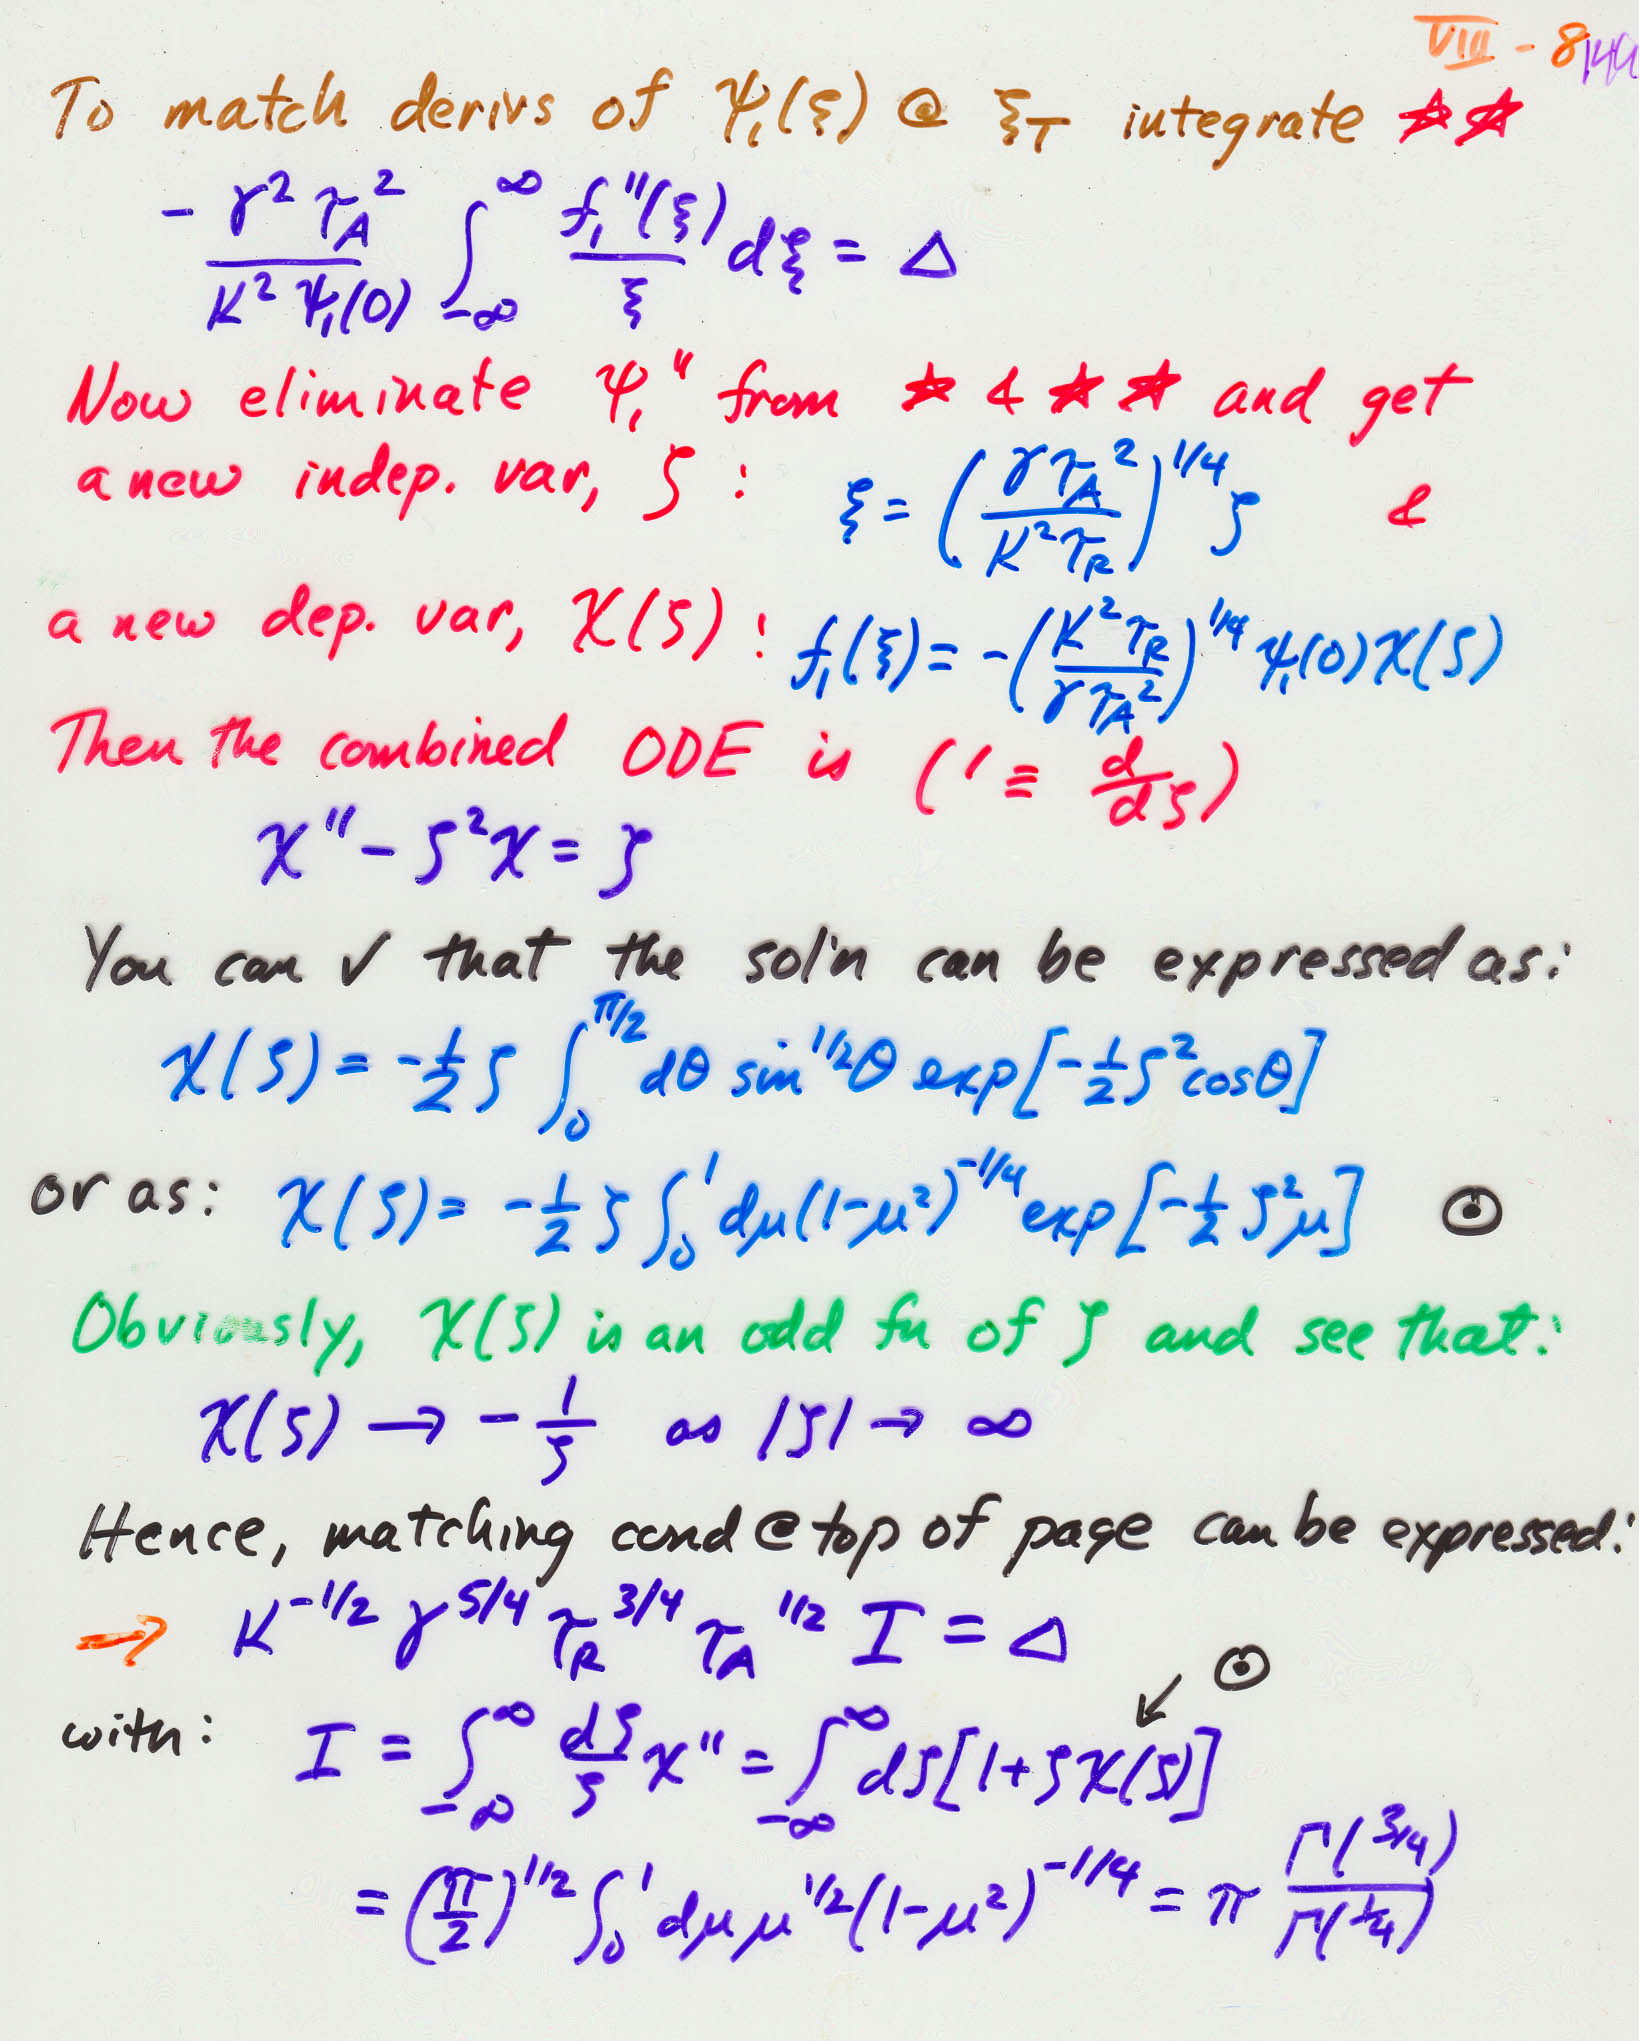 VIII - 8
To match derivs of ψ₁(ξ) @ ξ_T integrate ☆☆
- γ² τ_A² / K² ψ₁(0) ∫_{-∞}^{∞} f₁''(ξ) / ξ dξ = Δ
Now eliminate ψ₁'' from ☆ & ☆☆ and get
a new indep. var, ζ : ξ = (γ τ_A² / K² τ_R)^{1/4} ζ &
a new dep. var, χ(ζ) : f₁(ξ) = -(K² τ_R / γ τ_A²)^{1/4} ψ₁(0) χ(ζ)
Then the combined ODE is (' ≡ d/dζ)
χ'' - ζ² χ = ζ
You can ✓ that the sol'n can be expressed as:
χ(ζ) = -½ ζ ∫_0^{π/2} dθ sin^{1/2}θ exp[-½ ζ² cosθ]
or as: χ(ζ) = -½ ζ ∫_0^1 dμ (1-μ²)^{-1/4} exp[-½ ζ² μ] ⊙
Obviously, χ(ζ) is an odd fn of ζ and see that:
χ(ζ) → - 1/ζ as |ζ| → ∞
Hence, matching cond @ top of page can be expressed:
→ K^{-1/2} γ^{5/4} τ_R^{3/4} τ_A^{1/2} I = Δ
with: I = ∫_{-∞}^{∞} dζ/ζ χ'' = ∫_{-∞}^{∞} dζ [1 + ζ χ(ζ)] ↙ ⊙
= (π/2)^{1/2} ∫_0^1 dμ μ^{1/2} (1-μ²)^{-1/4} = π Γ(3/4) / Γ(1/4)